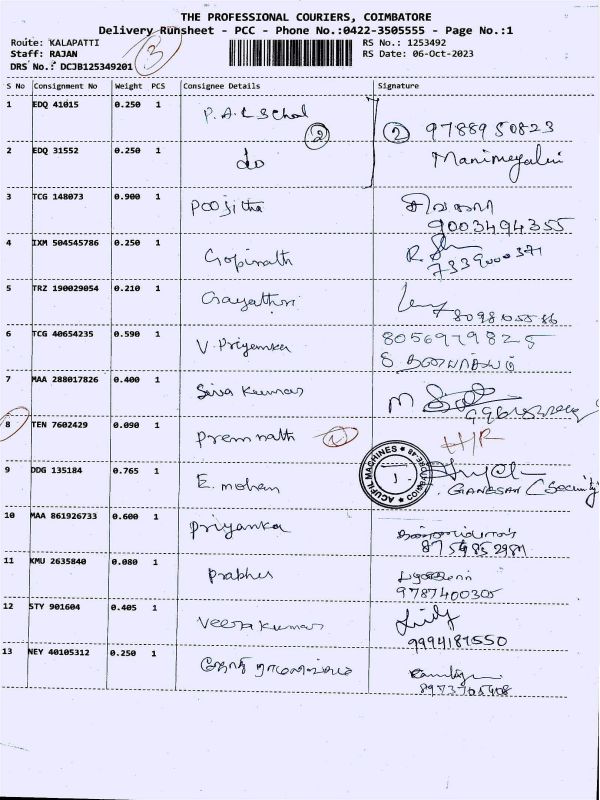 THE PROFESSIONAL COURIERS, COIMBATORE
Delivery Runsheet - PCC - Phone No.:0422-3505555 - Page No.:1
Route: KALAPATTI
RS No.: 1253492
Staff: RAJAN
RS Date: 06-Oct-2023
DRS No.: DCJB125349201
3
S No Consignment No Weight PCS Consignee Details Signature
1 EDQ 41015 0.250 1 P.A.C School
2
2 9788950823
2 EDQ 31552 0.250 1 do Manimegalai
3 TCG 148073 0.900 1 Poojitha
9003494355
4 IXM 504545786 0.250 1 Gopinath
7339000371
5 TRZ 190029054 0.210 1 Gayathri
6 TCG 40654235 0.590 1 V. Priyanka
8056979825
7 MAA 288017826 0.400 1 Siva Kumar
8 TEN 7602429 0.090 1 Prem nath H/R
9 DDG 135184 0.765 1 E. mohan
ACUFIL MACHINES
GANESAN (Security)
10 MAA 861926733 0.600 1 Priyanka
11 KMU 2635840 0.080 1 Prabhu
9787400305
12 STY 901604 0.405 1 Veerakumar
9994187550
13 NEY 40105312 0.250 1